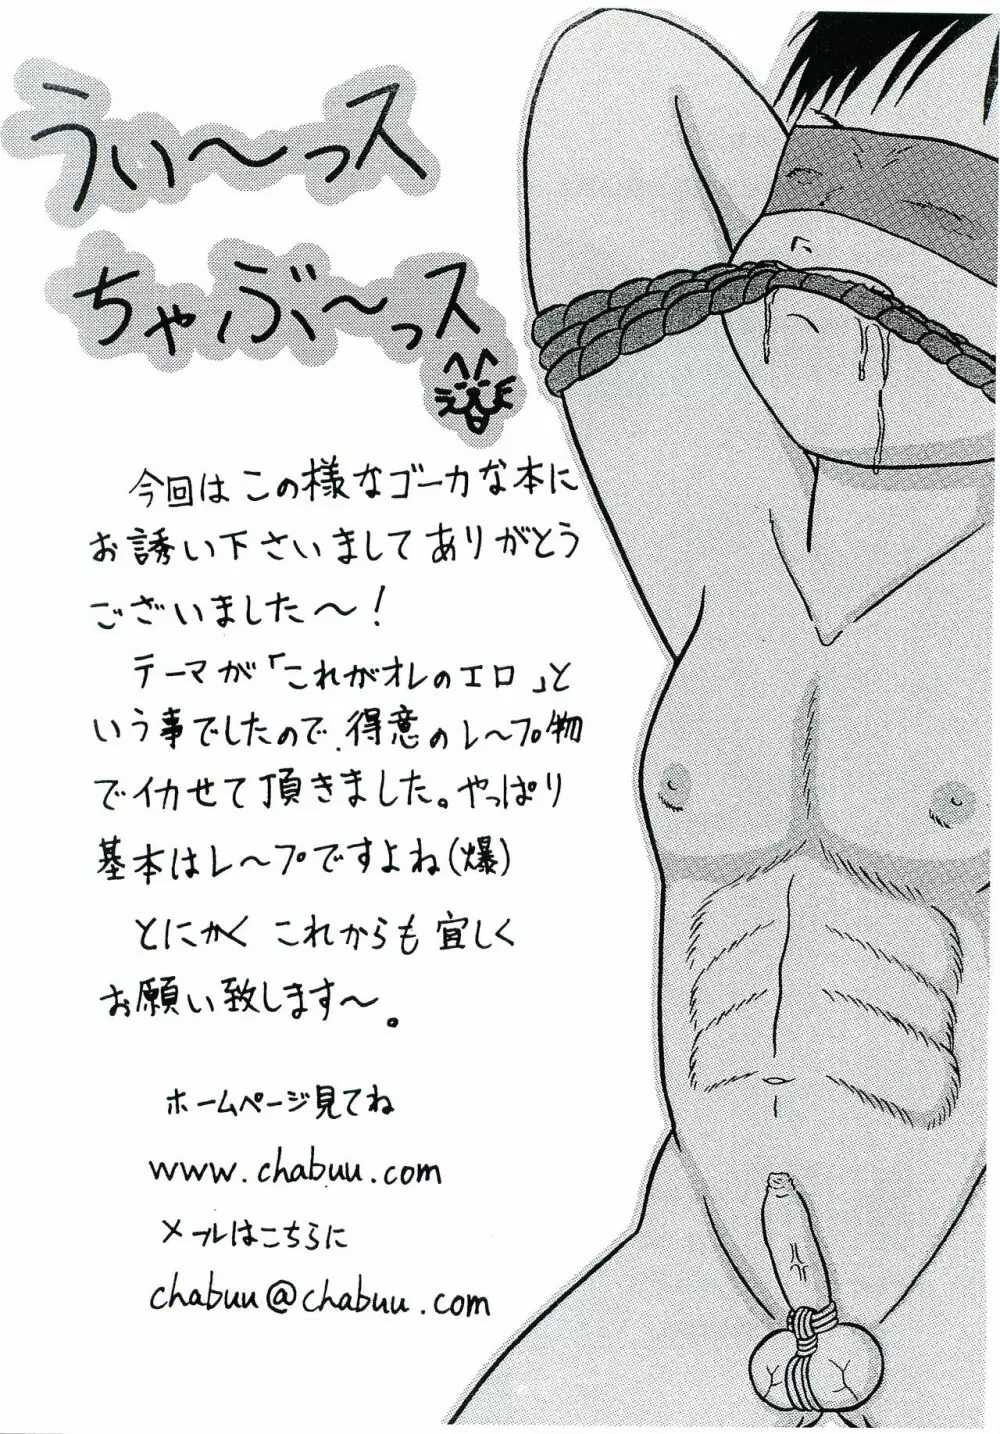 うぃ〜っス
ちゃぶ〜っス
今回はこの様なゴーカな本に
お誘い下さいましてありがとう
ございました〜！
テーマが「これがオレのエロ」と
いう事でしたので、得意のレ〜プ物
でイカせて頂きました。やっぱり
基本はレ〜プですよね(爆)
とにかくこれからも宜しく
お願い致します〜。
ホームページ見てね
www.chabuu.com
メールはこちらに
chabuu@chabuu.com